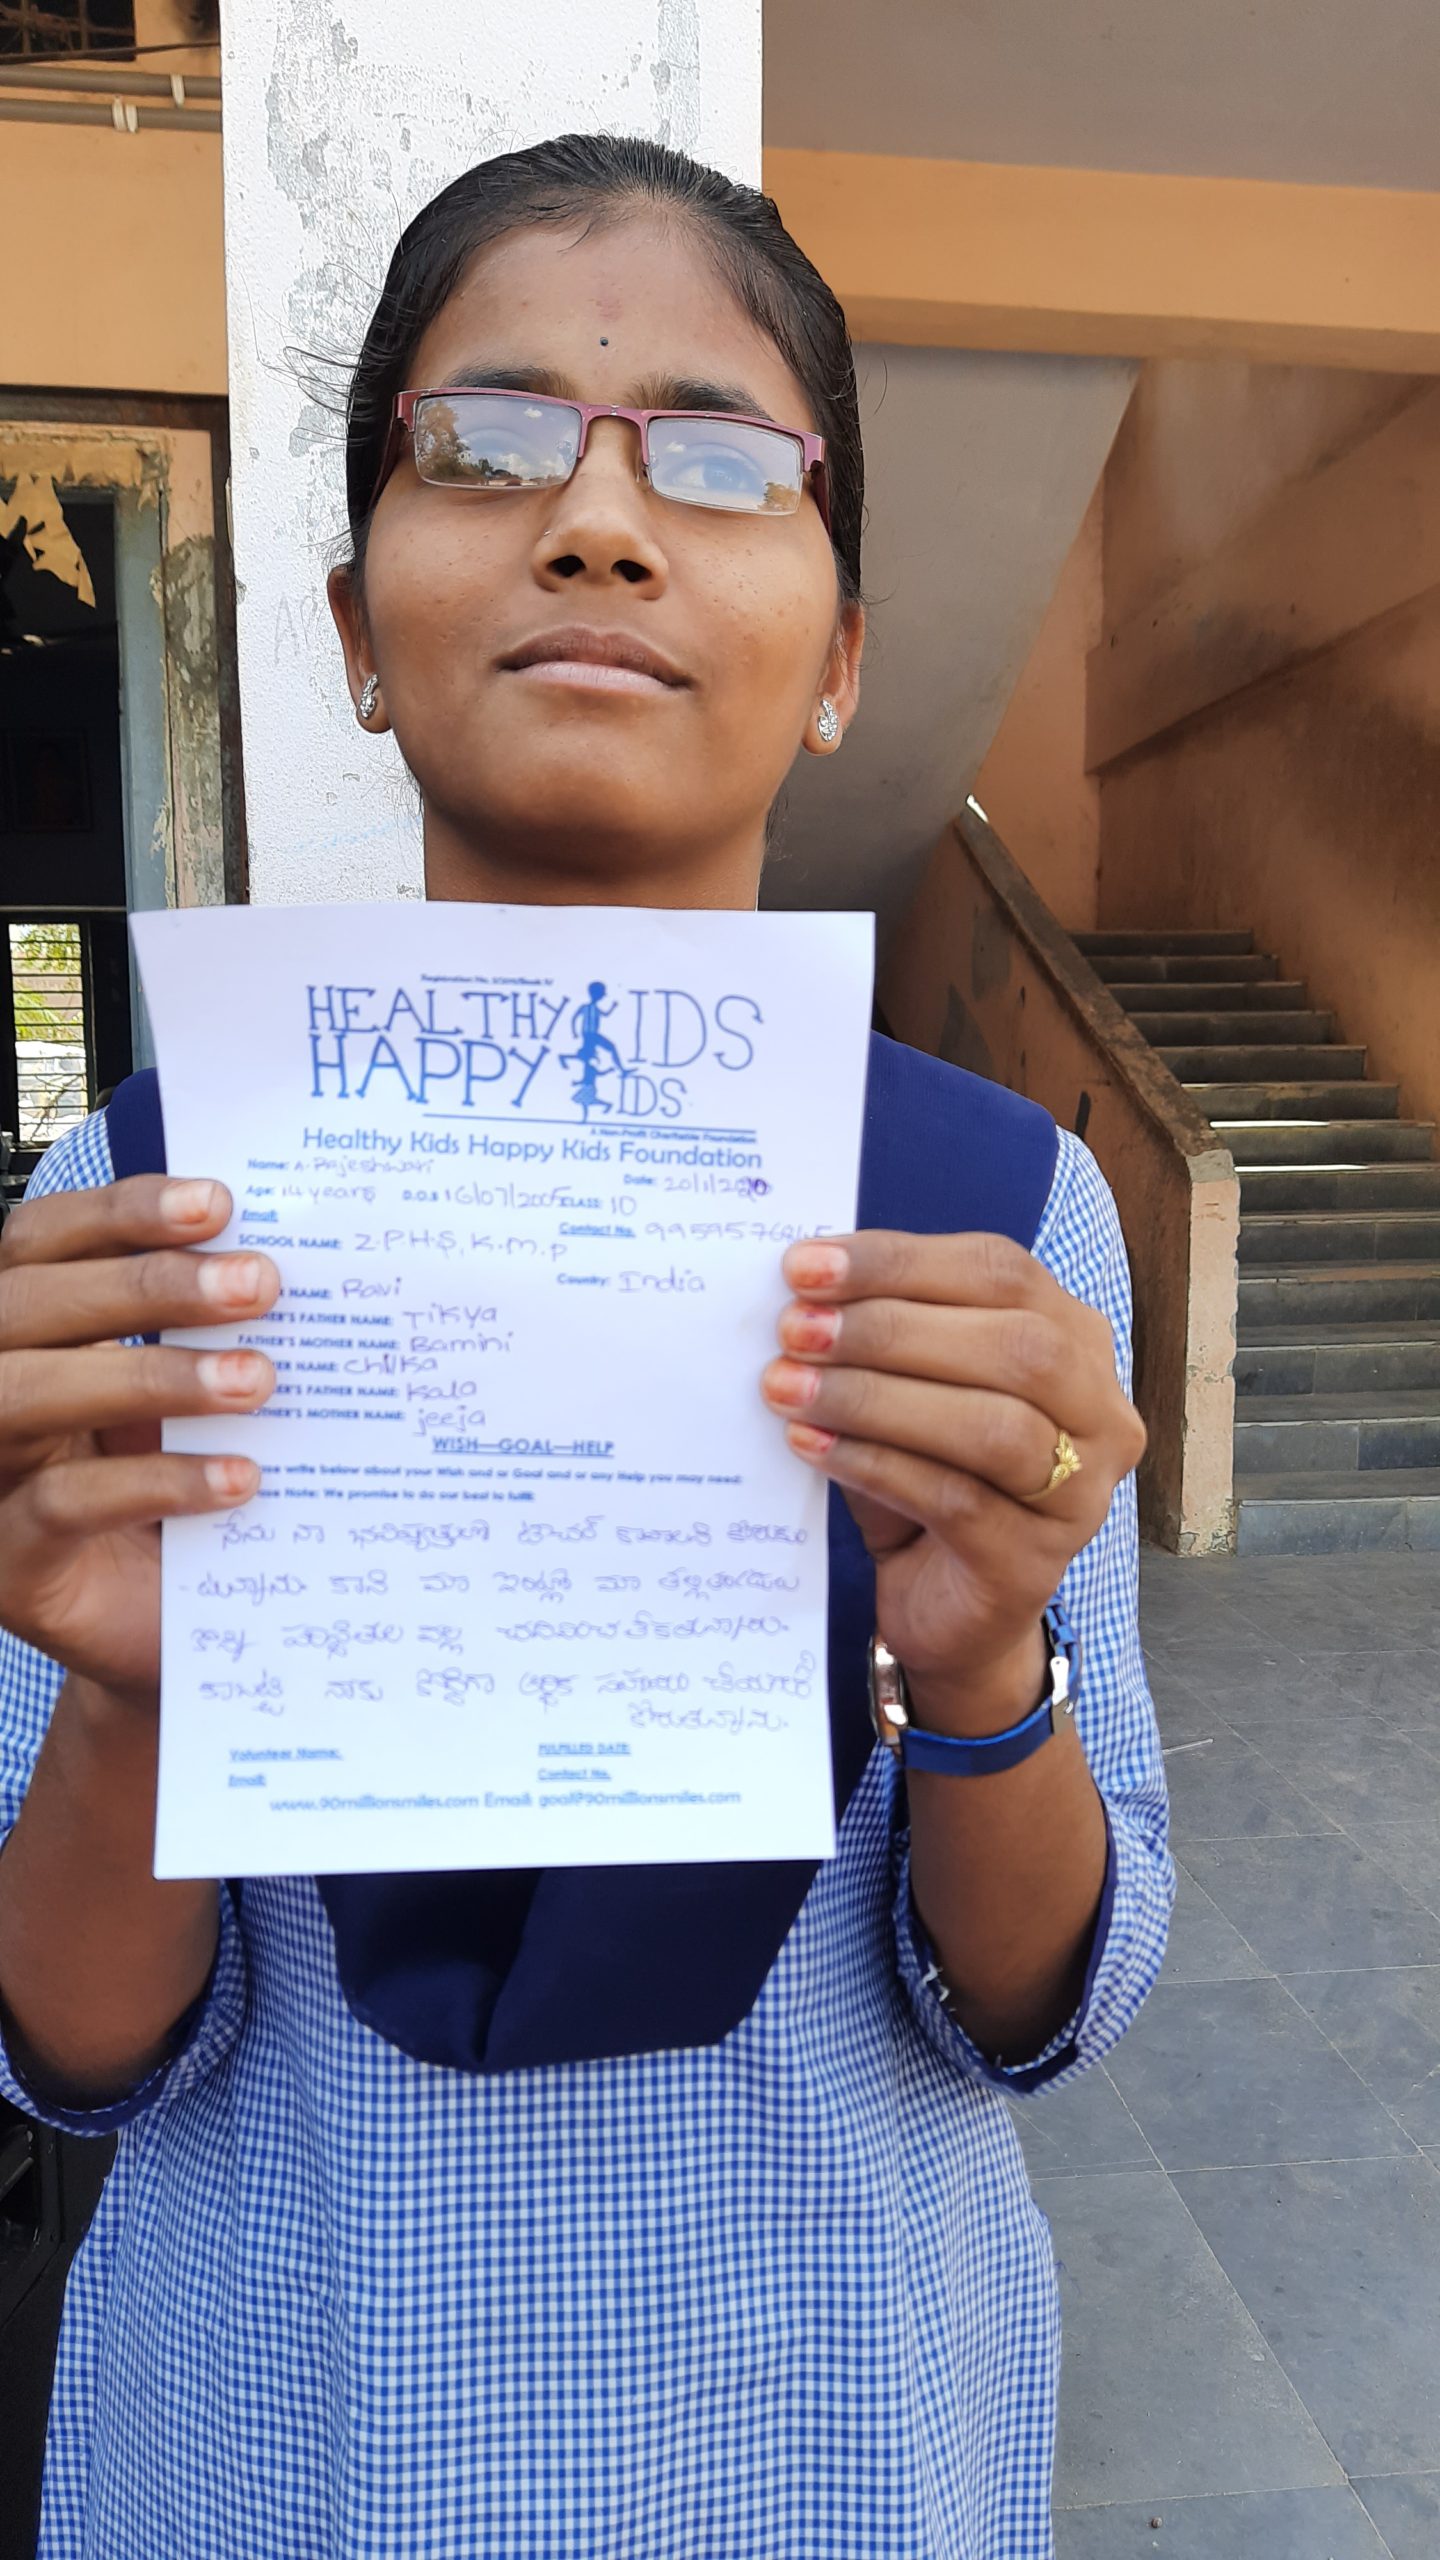 HEALTHY KIDS
HAPPY KIDS
A Non-Profit Charitable Foundation
Healthy Kids Happy Kids Foundation
Name: A. Rajeshwari
Date: 20/1/2020
Age: 14 years D.O.B 16/07/2005 CLASS: 10
Email:
Contact No. 99595
SCHOOL NAME: Z.P.H.S, K.M.P
NAME: Ravi
Country: India
FATHER NAME: Tikya
FATHER'S MOTHER NAME: Bamini
NAME: Chilka
FATHER NAME: Kala
MOTHER'S MOTHER NAME: jeeja
WISH—GOAL—HELP
write below about your Wish and or Goal and or any Help you may need:
Note: We promise to do our best to fulfil:
నేను నా భవిష్యత్తులో టీచర్ కావాలని కోరుకుం
-టున్నాను కాని మా ఇంట్లో మా తల్లితండ్రులు
కొన్ని పరిస్థితుల వల్ల చదివించలేకతున్నారు.
కాబట్టి నాకు ఆర్థిక సహాయం చేయగలరని
కోరుతున్నాను.
Volunteer Name:
FULFILLED DATE:
Email:
Contact No.
www.90millionsmiles.com Email: goal@90millionsmiles.com